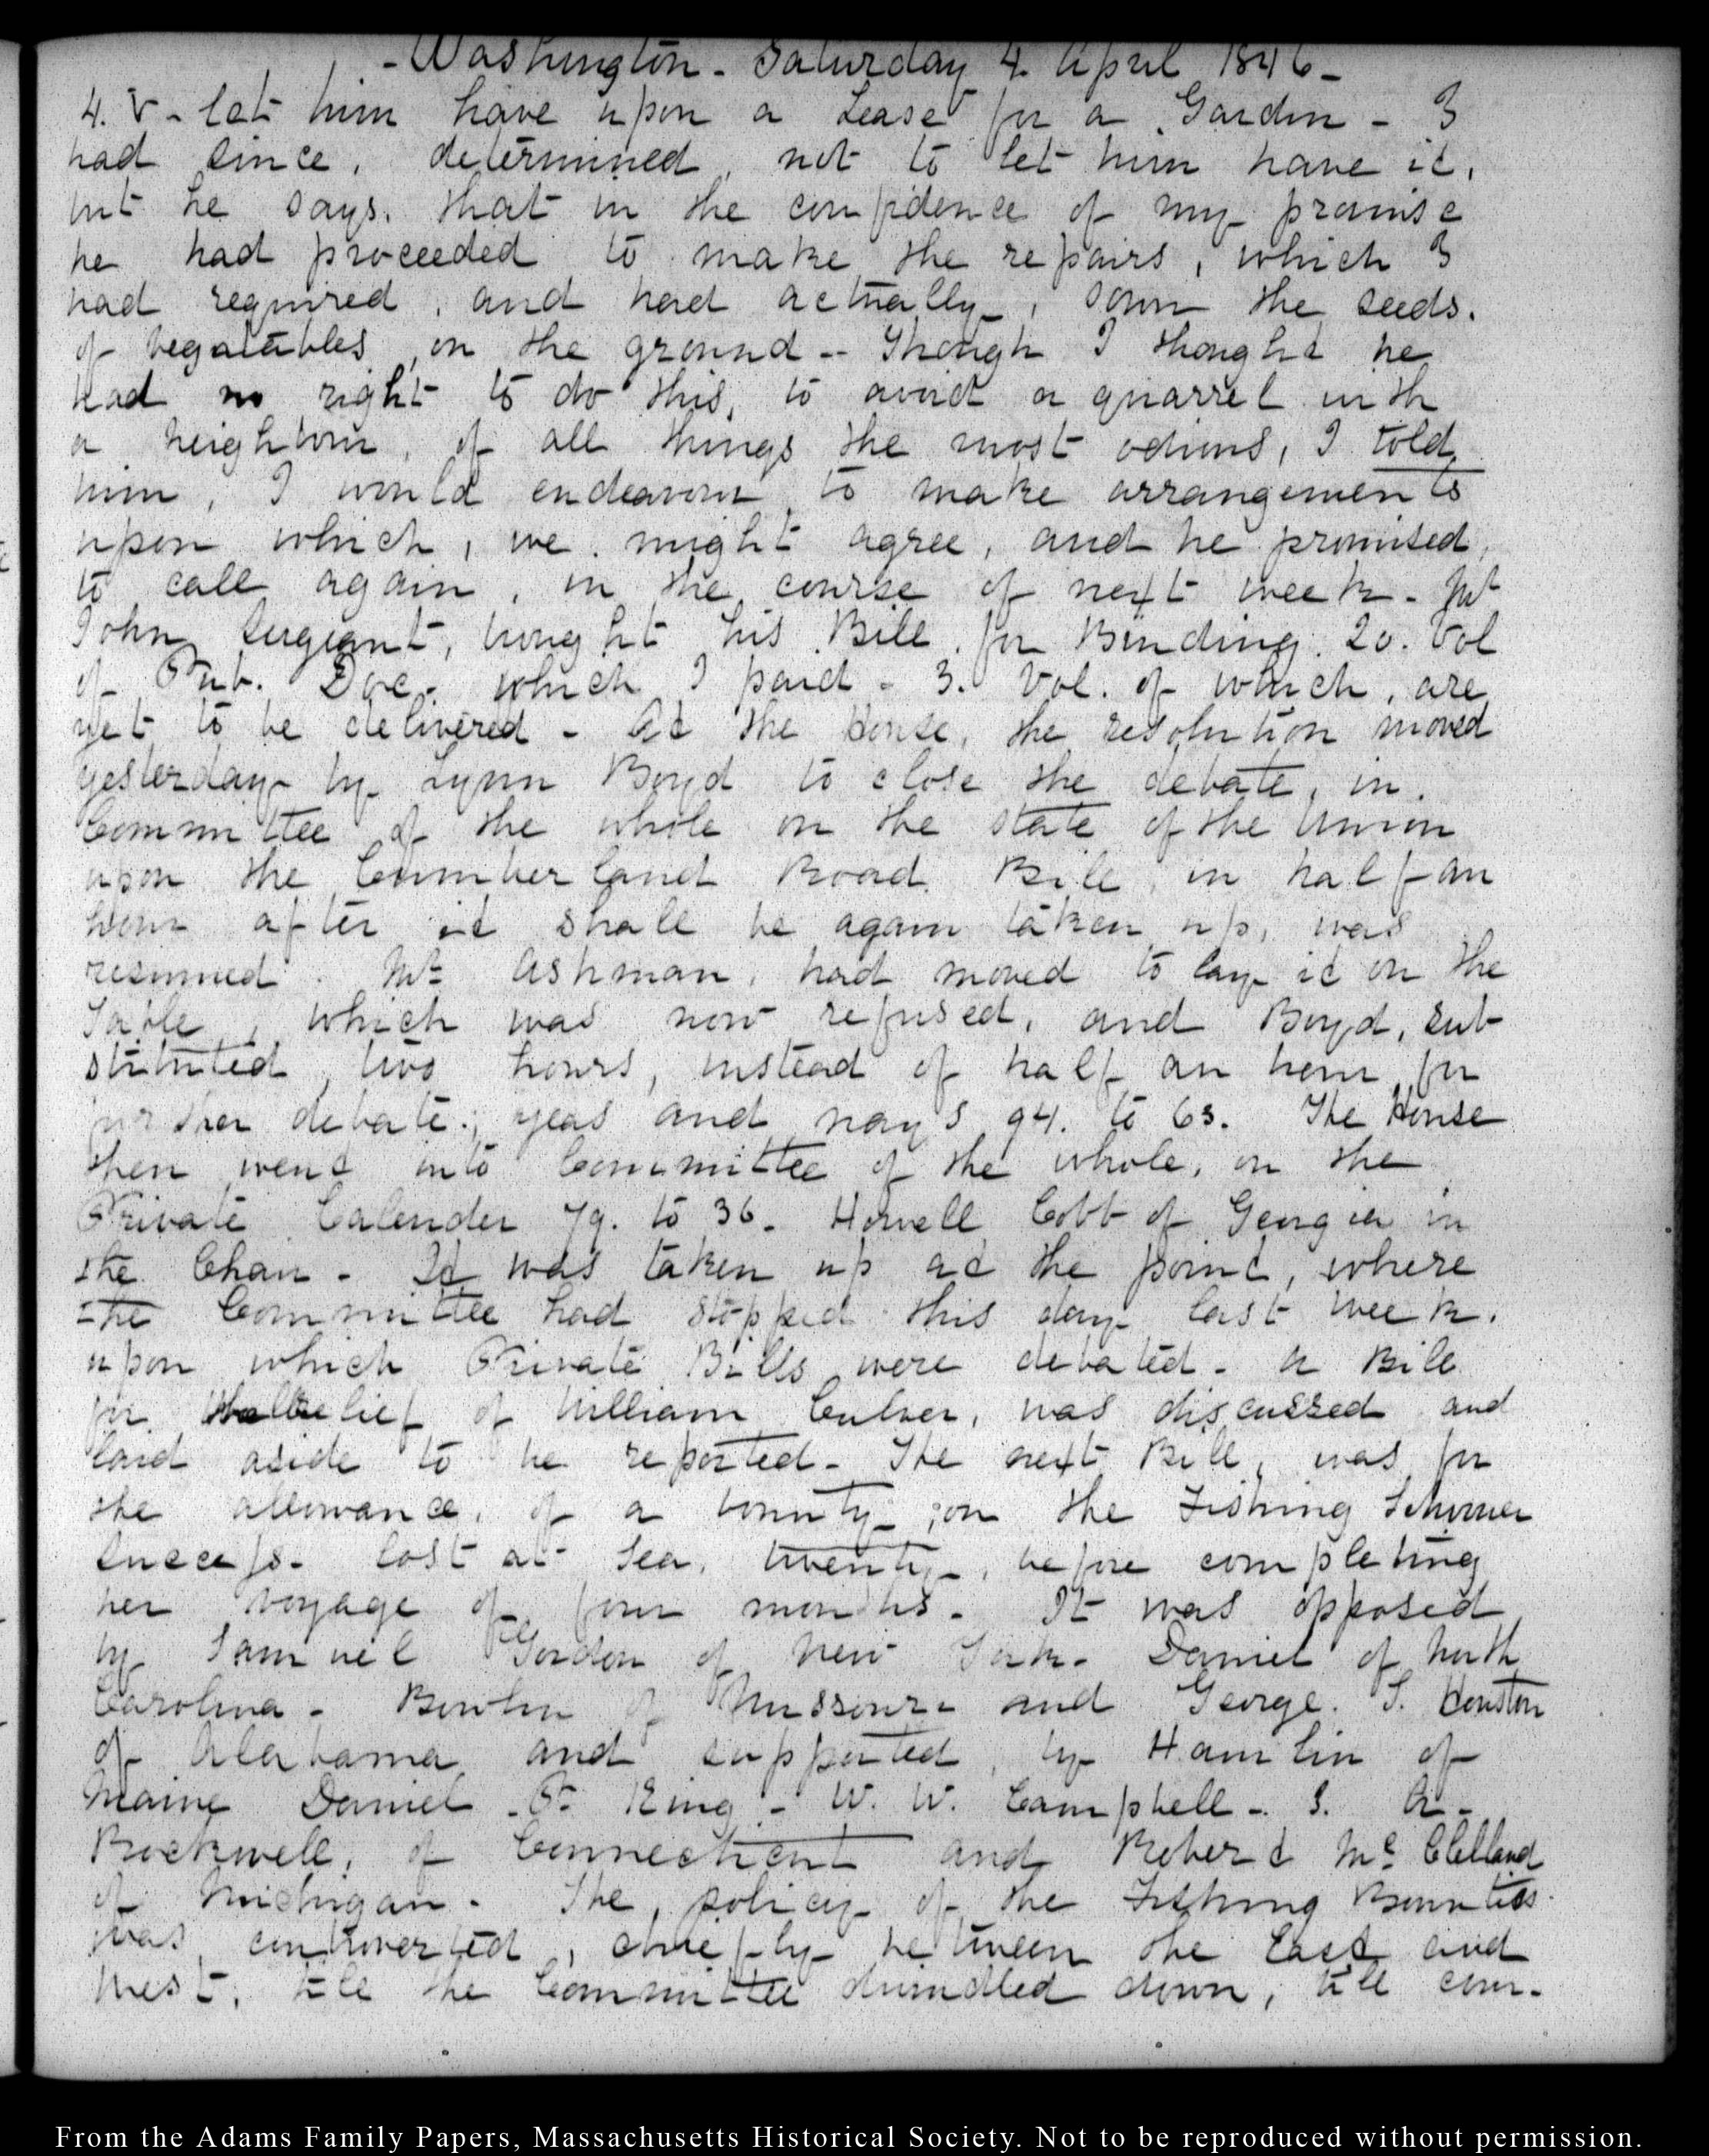 - Washington - Saturday 4. April 1846 -
4. V - let him have upon a Lease for a Garden - I
had since, determined, not to let him have it,
but he says, that in the confidence of my promise
he had proceeded to make the repairs, which I
had required, and had actually, sown the seeds.
of vegatables, in the ground -- Though I thought he
had no right to do this, to avoid a quarrel with
a neighbour, of all things the most odious, I told
him, I would endeavour to make arrangements
upon which, we might agree, and he promised,
to call again, in the course of next week -
John Sergeant, brought his Bill for Binding 20. Vol
of Pub. Doc. which I paid - 3. Vol. of which, are
yet to be delivered - At the House, the resolution moved
yesterday by Lynn Boyd to close the debate, in
Committee of the whole on the state of the Union
upon the Cumberland Road Bill, in half an
hour after it shall be again taken up, was
resumed. Mr Ashman, had moved to lay it on the
Table, which was now refused, and Boyd, sub
stituted two hours, instead of half an hour for
further debate; yeas and nays 94. to 63. The House
then went into Committee of the whole, on the
Private Calender 79. to 36. Howell Cobb of Georgia in
the Chair - It was taken up at the point, where
the Committee had stopped this day last week.
upon which Private Bills were debated - A Bill
for relief of William Culver, was discussed and
laid aside to be reported - The next Bill, was for
the allowance, of a bounty, on the Fishing Schooner
Success - lost at Sea, twenty, before completing
her voyage of four months - It was opposed
by Samuel Gordon of New York - Daniel of North
Carolina - Bowlin of Missouri and George. S. Houston
of Alabama and supported, by Hamlin of
Maine Daniel P. King - W. W. Campbell - J. A -
Rockwell, of Connecticut and Robert Mc Clelland
of Michigan - The, policy of the Fishing Bounties
was controverted, chiefly between the East and
West, till the Committee dwindled down, till com-
From the Adams Family Papers, Massachusetts Historical Society. Not to be reproduced without permission.